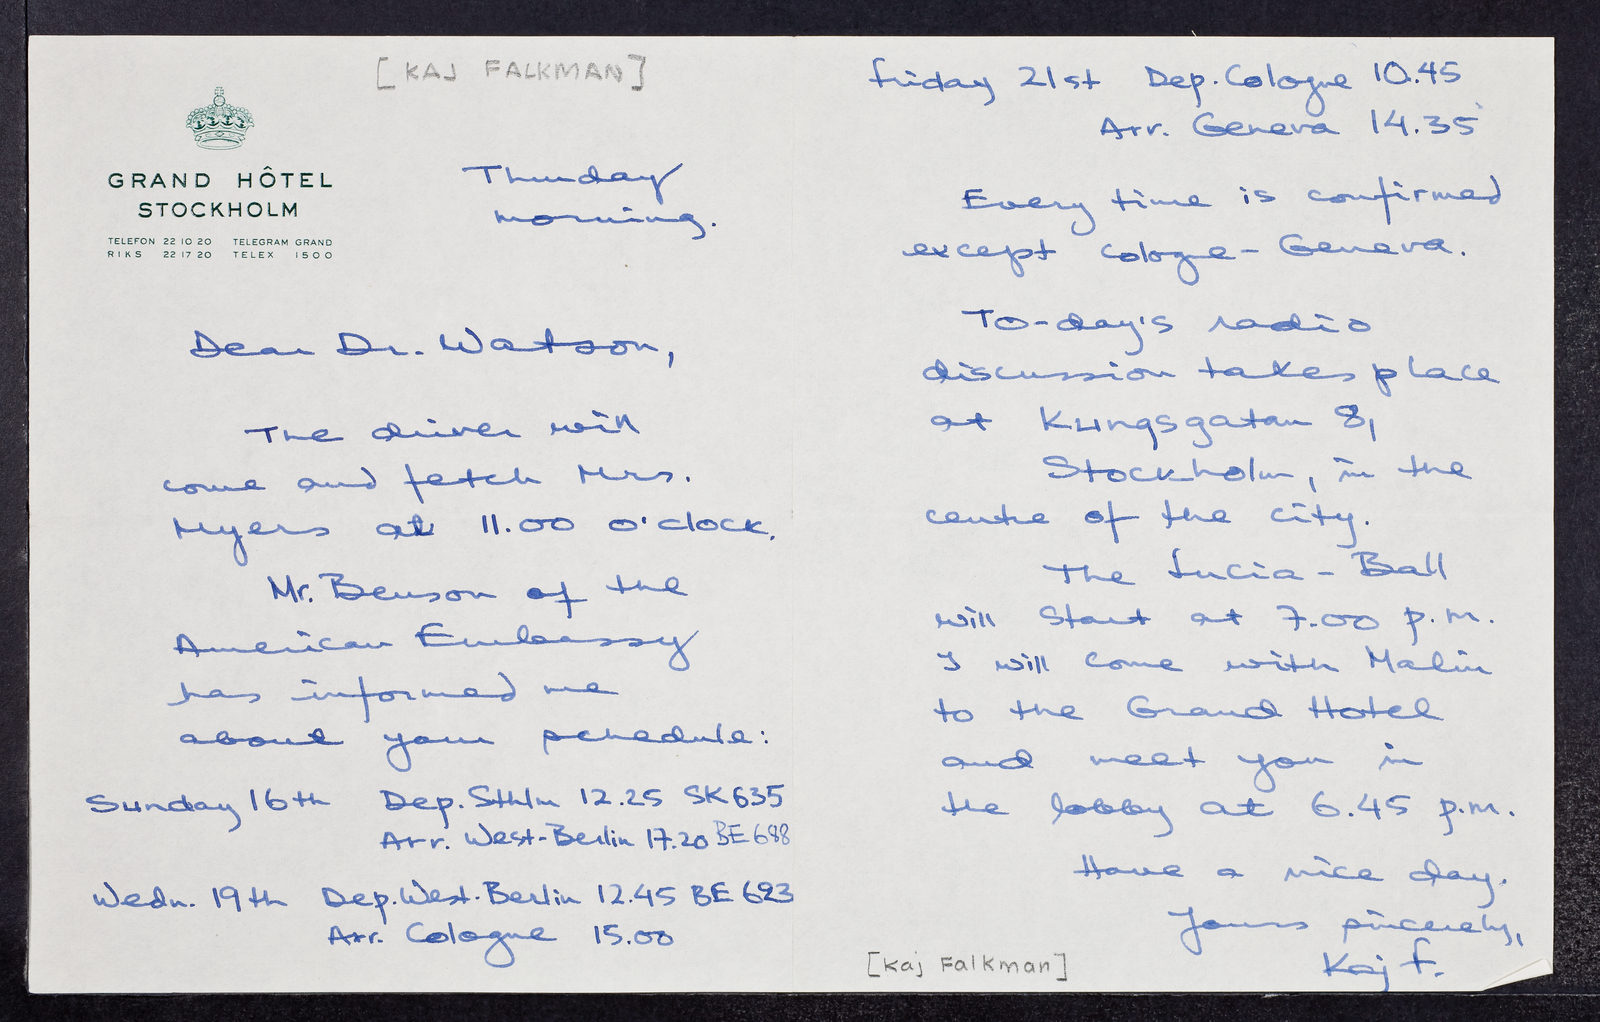 [KAJ FALKMAN]
GRAND HÔTEL
STOCKHOLM
TELEFON 22 10 20 TELEGRAM GRAND
RIKS 22 17 20 TELEX 1500
Thursday
morning.
Dear Dr. Watson,
The driver will
come and fetch Mrs.
Myers at 11.00 o'clock.
Mr. Benson of the
American Embassy
has informed me
about your schedule:
Sunday 16th Dep. Sthlm 12.25 SK 635
Arr. West-Berlin 17.20 BE 688
Wedn. 19th Dep. West-Berlin 12.45 BE 693
Arr. Cologne 15.00
Friday 21st Dep. Cologne 10.45
Arr. Geneva 14.35
Every time is confirmed
except Cologne - Geneva.
To-day's radio
discussion takes place
at Kungsgatan 8,
Stockholm, in the
centre of the city.
The Lucia-Ball
will start at 7.00 p.m.
I will come with Malin
to the Grand Hotel
and meet you in
the lobby at 6.45 p.m.
Have a nice day.
Yours sincerely,
Kaj F.
[Kaj Falkman]